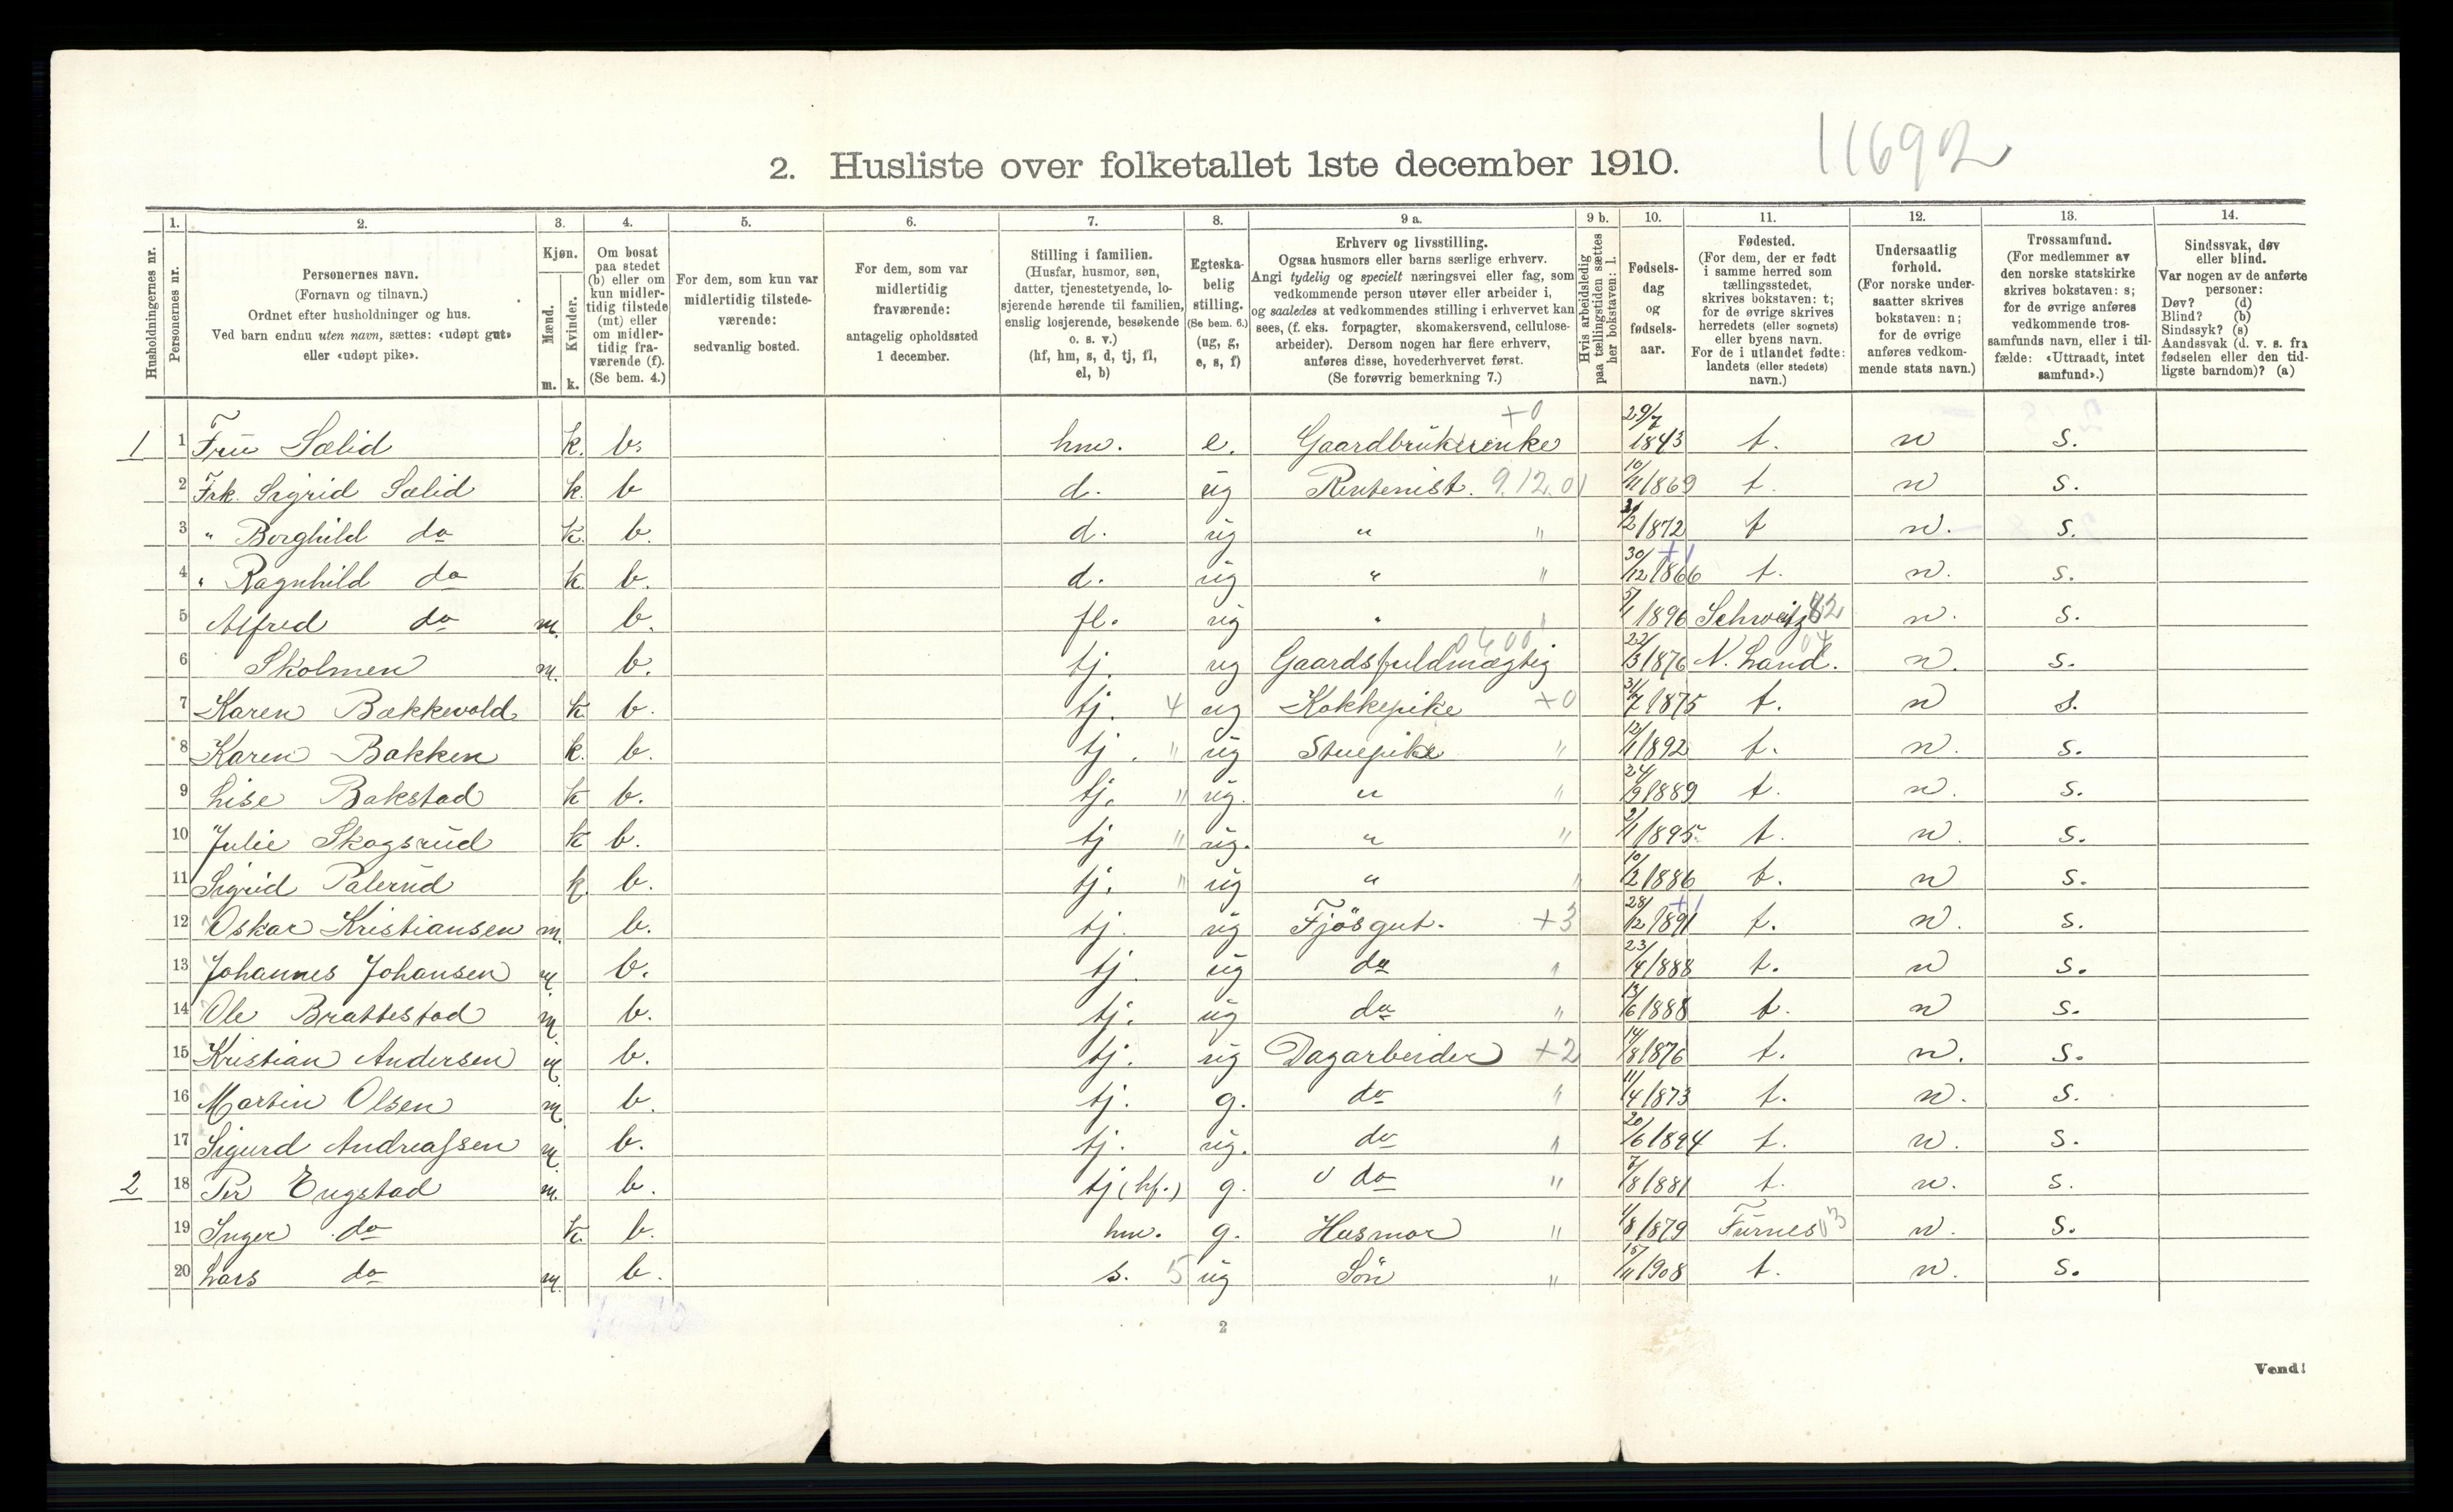 11692
2. Husliste over folketallet 1ste december 1910.
1. 2. 3. 4. 5. 6. 7. 8. 9 a. 9 b. 10. 11. 12. 13. 14.
Husholdningernes nr.
Personernes nr.
Personernes navn.
(Fornavn og tilnavn.)
Ordnet efter husholdninger og hus.
Ved barn endnu uten navn, sættes: «udøpt gut»
eller «udøpt pike».
Kjøn.
Mænd.
Kvinder.
m. k.
Om bosat
paa stedet
(b) eller om
kun midler-
tidig tilstede
(mt) eller
om midler-
tidig fra-
værende (f).
(Se bem. 4.)
For dem, som kun var
midlertidig tilstede-
værende:
sedvanlig bosted.
For dem, som var
midlertidig
fraværende:
antagelig opholdssted
1 december.
Stilling i familien.
(Husfar, husmor, søn,
datter, tjenestetyende, lo-
sjerende hørende til familien,
enslig losjerende, besøkende
o. s. v.)
(hf, hm, s, d, tj, fl,
el, b)
Egteska-
belig
stilling.
(Se bem. 6.)
(ug, g,
e, s, f)
Erhverv og livsstilling.
Ogsaa husmors eller barns særlige erhverv.
Angi tydelig og specielt næringsvei eller fag, som
vedkommende person utøver eller arbeider i,
og saaledes at vedkommendes stilling i erhvervet kan
sees, (f. eks. forpagter, skomakersvend, cellulose-
arbeider). Dersom nogen har flere erhverv,
anføres disse, hovederhvervet først.
(Se forøvrig bemerkning 7.)
Hvis arbeidsledig
paa tællingstiden sættes
her bokstaven: l.
Fødsels-
dag
og
fødsels-
aar.
Fødested.
(For dem, der er født
i samme herred som
tællingsstedet,
skrives bokstaven: t;
for de øvrige skrives
herredets (eller sognets)
eller byens navn.
For de i utlandet fødte:
landets (eller stedets)
navn.)
Undersaatlig
forhold.
(For norske under-
saatter skrives
bokstaven: n;
for de øvrige
anføres vedkom-
mende stats navn.)
Trossamfund.
(For medlemmer av
den norske statskirke
skrives bokstaven: s;
for de øvrige anføres
vedkommende tros-
samfunds navn, eller i til-
fælde: «Uttraadt, intet
samfund».)
Sindssvak, døv
eller blind.
Var nogen av de anførte
personer:
Døv? (d)
Blind? (b)
Sindssyk? (s)
Aandssvak (d. v. s. fra
fødselen eller den tid-
ligste barndom)? (a)
1 1 Fru Sælid k. b. hm. e. Gaardbrukerenke +0 29/7 1843 t. n s.
2 Frk. Sigrid Sælid k. b d. ug Rentenist. 9.12.01 10/11 1869 t. n s.
3 " Borghild do k. b. d. ug " " /2 1872 t n. s.
4 " Ragnhild do k. b. d. ug " " 30/12 1866 +1 t. n. s.
5 Alfred do m. b. fl. ug " " 5/1 1896 Schweitz 82 n. s.
6 Skolmen m. b. tj. ug Gaardsfuldmægtig 0400 22/3 1876 N. Land. 04 n. s.
7 Karen Bækkevold k. b. tj. 4 ug Kokkepike +0 31/7 1875 t. n s.
8 Karen Bakken k. b. tj. " ug Stuepike " 12/11 1892 t. n. s.
9 Lise Bakstad k b. tj. " ug. " " 24/9 1889 t. n. s.
10 Julie Skogsrud k b. tj " ug. " " 2/11 1895. t. n. s.
11 Sigrid Palerud k. b. tj. " ug " " 10/2 1886 t. n s.
12 Oskar Kristiansen m. b. tj. ug Fjøsgut. +3 28/12 1891 +1 t. n. s.
13 Johannes Johansen m b. tj. ug do " 23/4 1888 t. n s.
14 Ole Brattestad m b. tj. ug do " 13/6 1888 t. n s.
15 Kristian Andersen m b. tj. ug Dagarbeider +2 14/8 1876 t. n. s.
16 Martin Olsen m b. tj. g. do " 11/4 1873 t. n. s.
17 Sigurd Andreassen m b. tj. ug. do " 20/6 1894 t. n. s.
2 18 Per Engstad m. b. tj (hf.) g. do " 7/8 1881 t. n. s.
19 Inger do k. b. hm. g. Husmor " 1/8 1879 Furnes 03 n. s.
20 Lars do m. b. s. 5 ug Søn " 15/11 1908 t. n. s.
2
Vend!